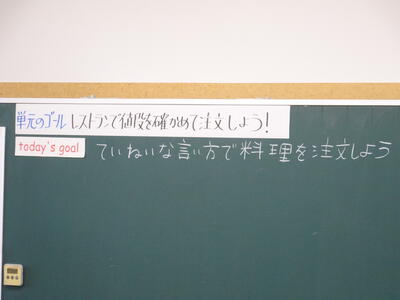 単元のゴール レストランで値段を確かめて注文しよう!
today's goal ていねいな言い方で料理を注文しよう